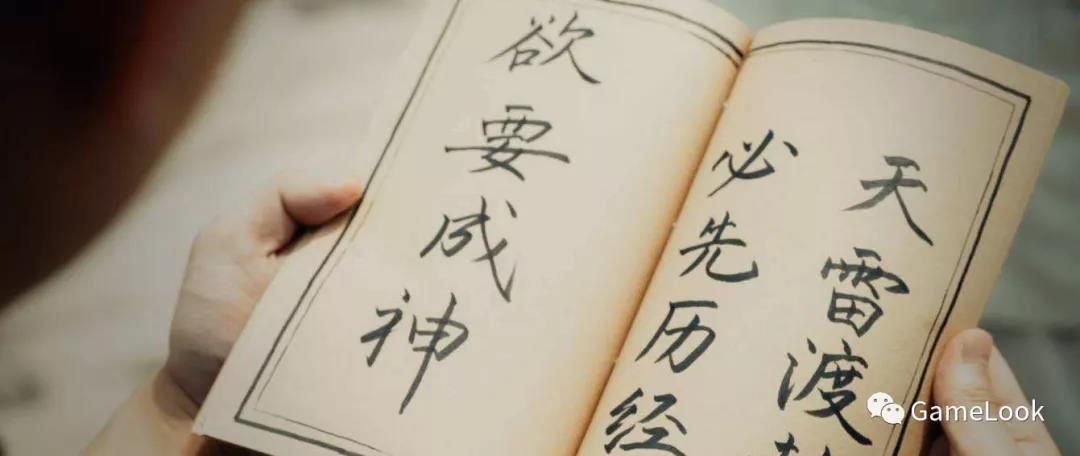 欲要成神
必先历经
天雷渡
GameLook